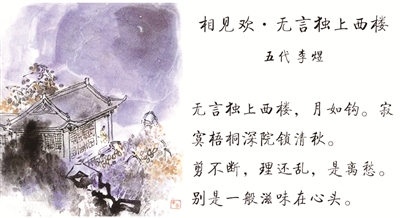 相见欢·无言独上西楼
五代 李煜
无言独上西楼，月如钩。寂
寞梧桐深院锁清秋。
剪不断，理还乱，是离愁。
别是一般滋味在心头。